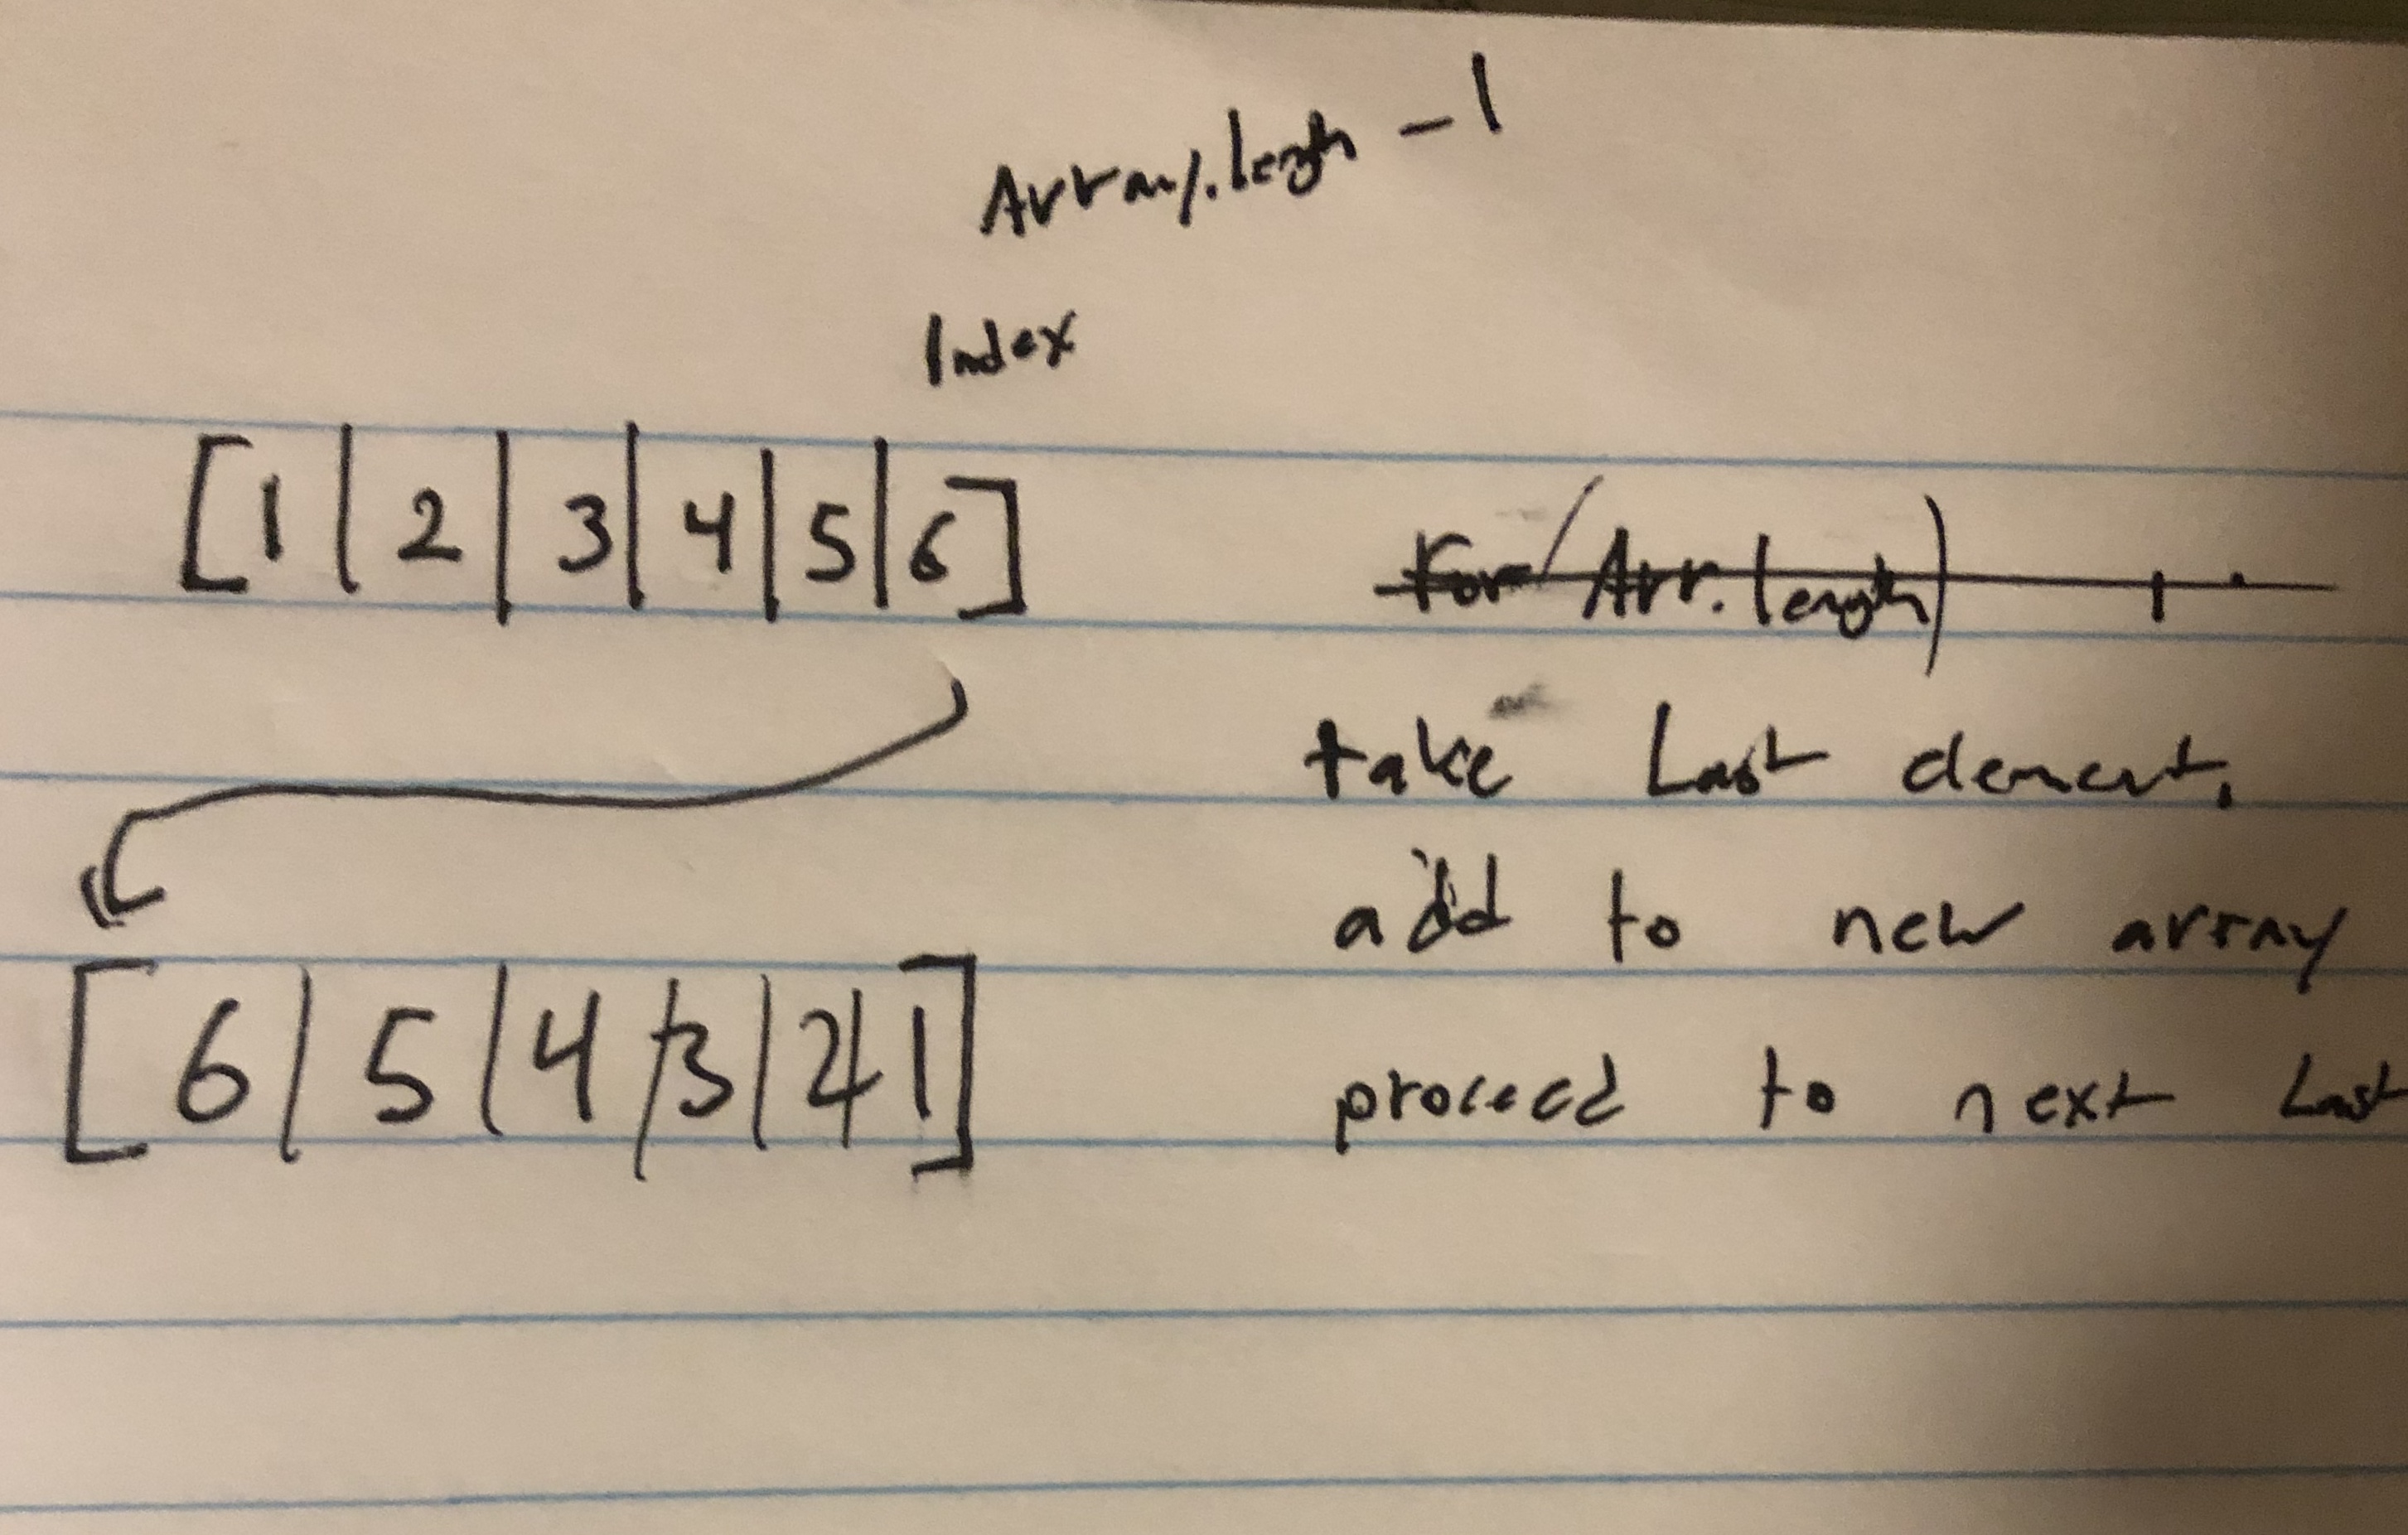 Array.length - 1
Index
[1|2|3|4|5|6]
For(Arr.length)
take Last element.
add to new array
proceed to next Last
[6|5|4|3|2|1]